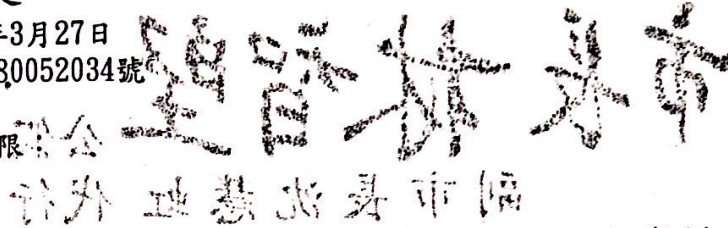 年3月27日
80052034號
市長林智堅
限
公
副市長沈慧虹代行